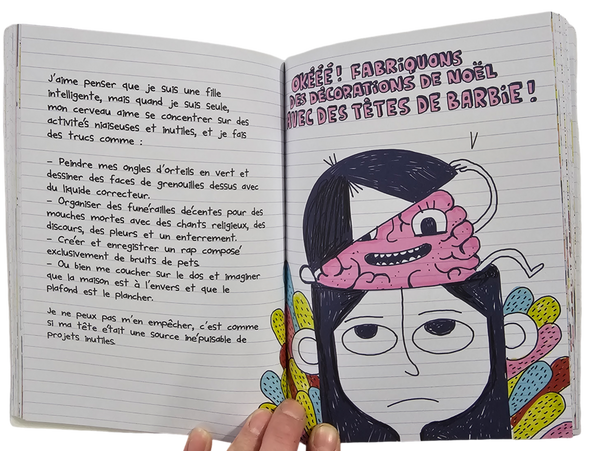 J'aime penser que je suis une fille
intelligente, mais quand je suis seule,
mon cerveau aime se concentrer sur des
activités niaiseuses et inutiles, et je fais
des trucs comme :
– Peindre mes ongles d'orteils en vert et
dessiner des faces de grenouilles dessus avec
du liquide correcteur.
– Organiser des funérailles décentes pour des
mouches mortes avec des chants religieux, des
discours, des pleurs et un enterrement.
– Créer et enregistrer un rap composé
exclusivement de bruits de pets.
– Ou bien me coucher sur le dos et imaginer
que la maison est à l'envers et que le
plafond est le plancher.
Je ne peux pas m'en empêcher, c'est comme
si ma tête était une source inépuisable de
projets inutiles.
OKÉÉÉ! FABRIQUONS
DES DÉCORATIONS DE NOËL
AVEC DES TÊTES DE BARBIE!